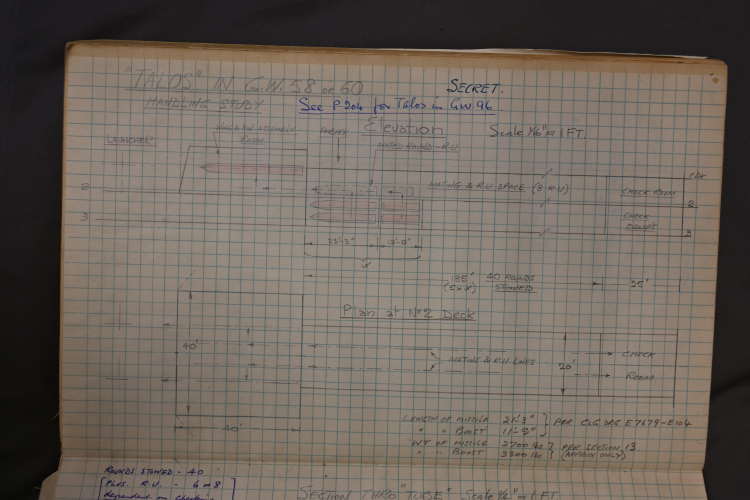 "TALOS" IN G.W. 58 OR 60
SECRET.
HANDLING STUDY
See P 204 for Talos in GW.96.
Elevation
Scale 1/16" = 1 FT.
ASSEMBLY
ROOM
LAUNCHER
MATED ROUND - R.U.
1 DK
2
MATING & R.U SPACE (8 R.U)
CHECK ROOM
2
3
CHECK
3
185'
(5xx)
40 ROUNDS
STOWED
35'
Plan at No 2 Deck
40'
MATING & R.U. LINES
20'
CHECK
ROOM
40'
LENGTH OF MISSILE 21'-3" } PER CLG DRG E7679-E104
" " BOOST
WT OF MISSILE 2700 lbs } PER SECTION 13.
" " BOOST 3300 lbs (APPROX ONLY)
ROUNDS STOWED - 40
PLUS. R.U. - 6 or 8
dependent on
SECTION THRO "TUBE" Scale 1/4" = 1 FT